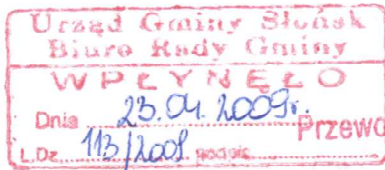 Urząd Gminy Słońsk
Biuro Rady Gminy
WPŁYNĘŁO
Dnia 23.04.2009r.
Przewo
L.Dz. 113/2009 podpis